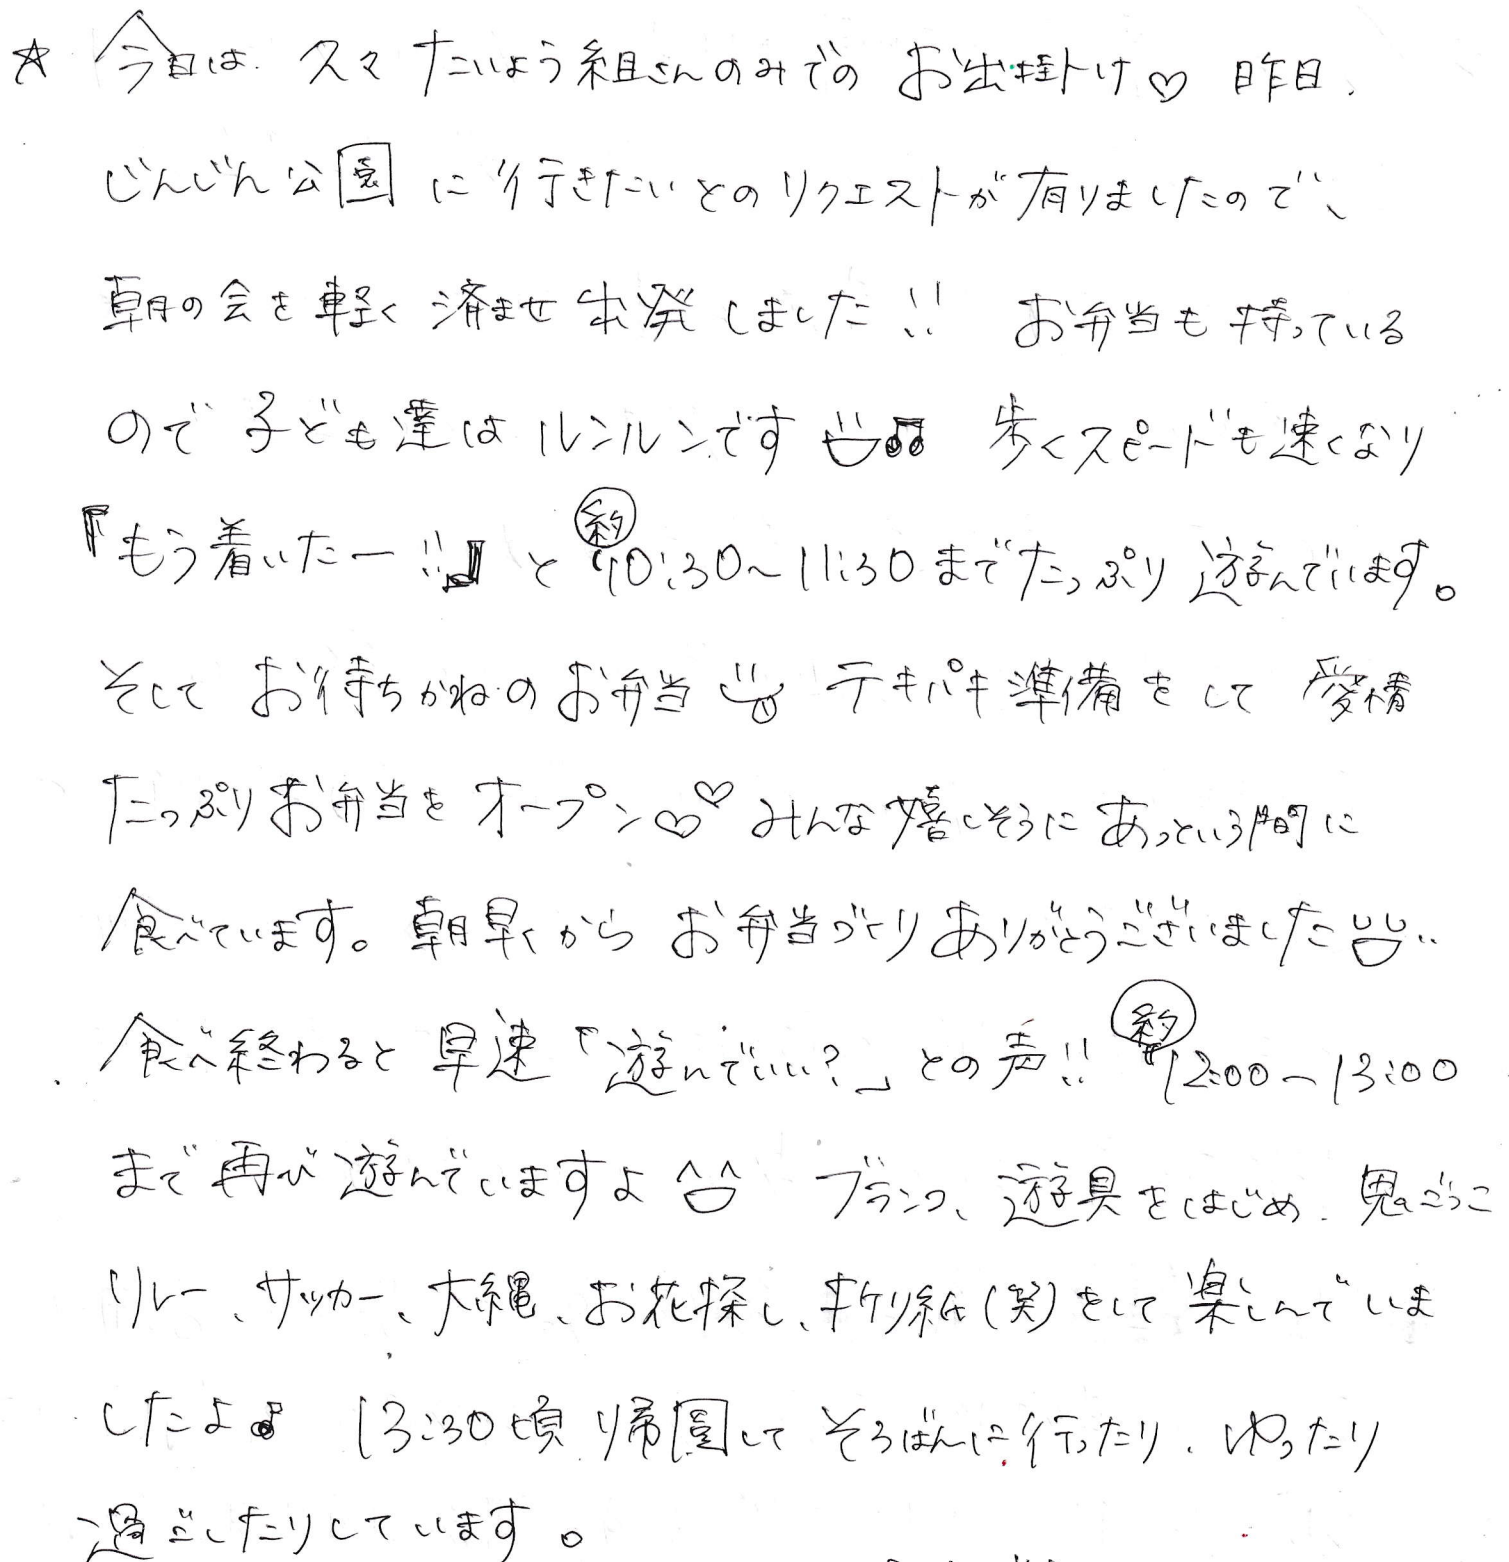 ☆ 今日は 久々 たいよう組さんのみでの お出掛け♡ 昨日、
じんじん公園に行きたいとのリクエストが有りましたので、
朝の会を軽く済ませ出発しました!! お弁当も持っている
ので子ども達はルンルンです♫ 歩くスピードも速くなり
『もう着いたー!!』と 約10:30〜11:30までたっぷり遊んでいます。
そして お待ちかねのお弁当 テキパキ準備をして 愛情
たっぷりお弁当をオープン♡♡ みんな嬉しそうにあっという間に
食べています。朝早くから お弁当づくりありがとうございました
食べ終わると早速「遊んでいい?」との声!! 約12:00〜13:00
まで再び遊んでいますよ^^ ブランコ、遊具をはじめ、鬼ごっこ
リレー、サッカー、大縄、お花探し、折り紙(笑)をして楽しんでいま
したよ♪ 13:30頃帰園してそろばんに行ったり、ゆったり
過ごしたりしています。